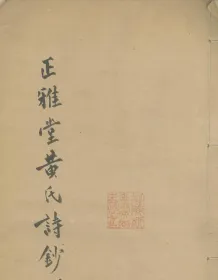 正雅堂黄氏詩鈔